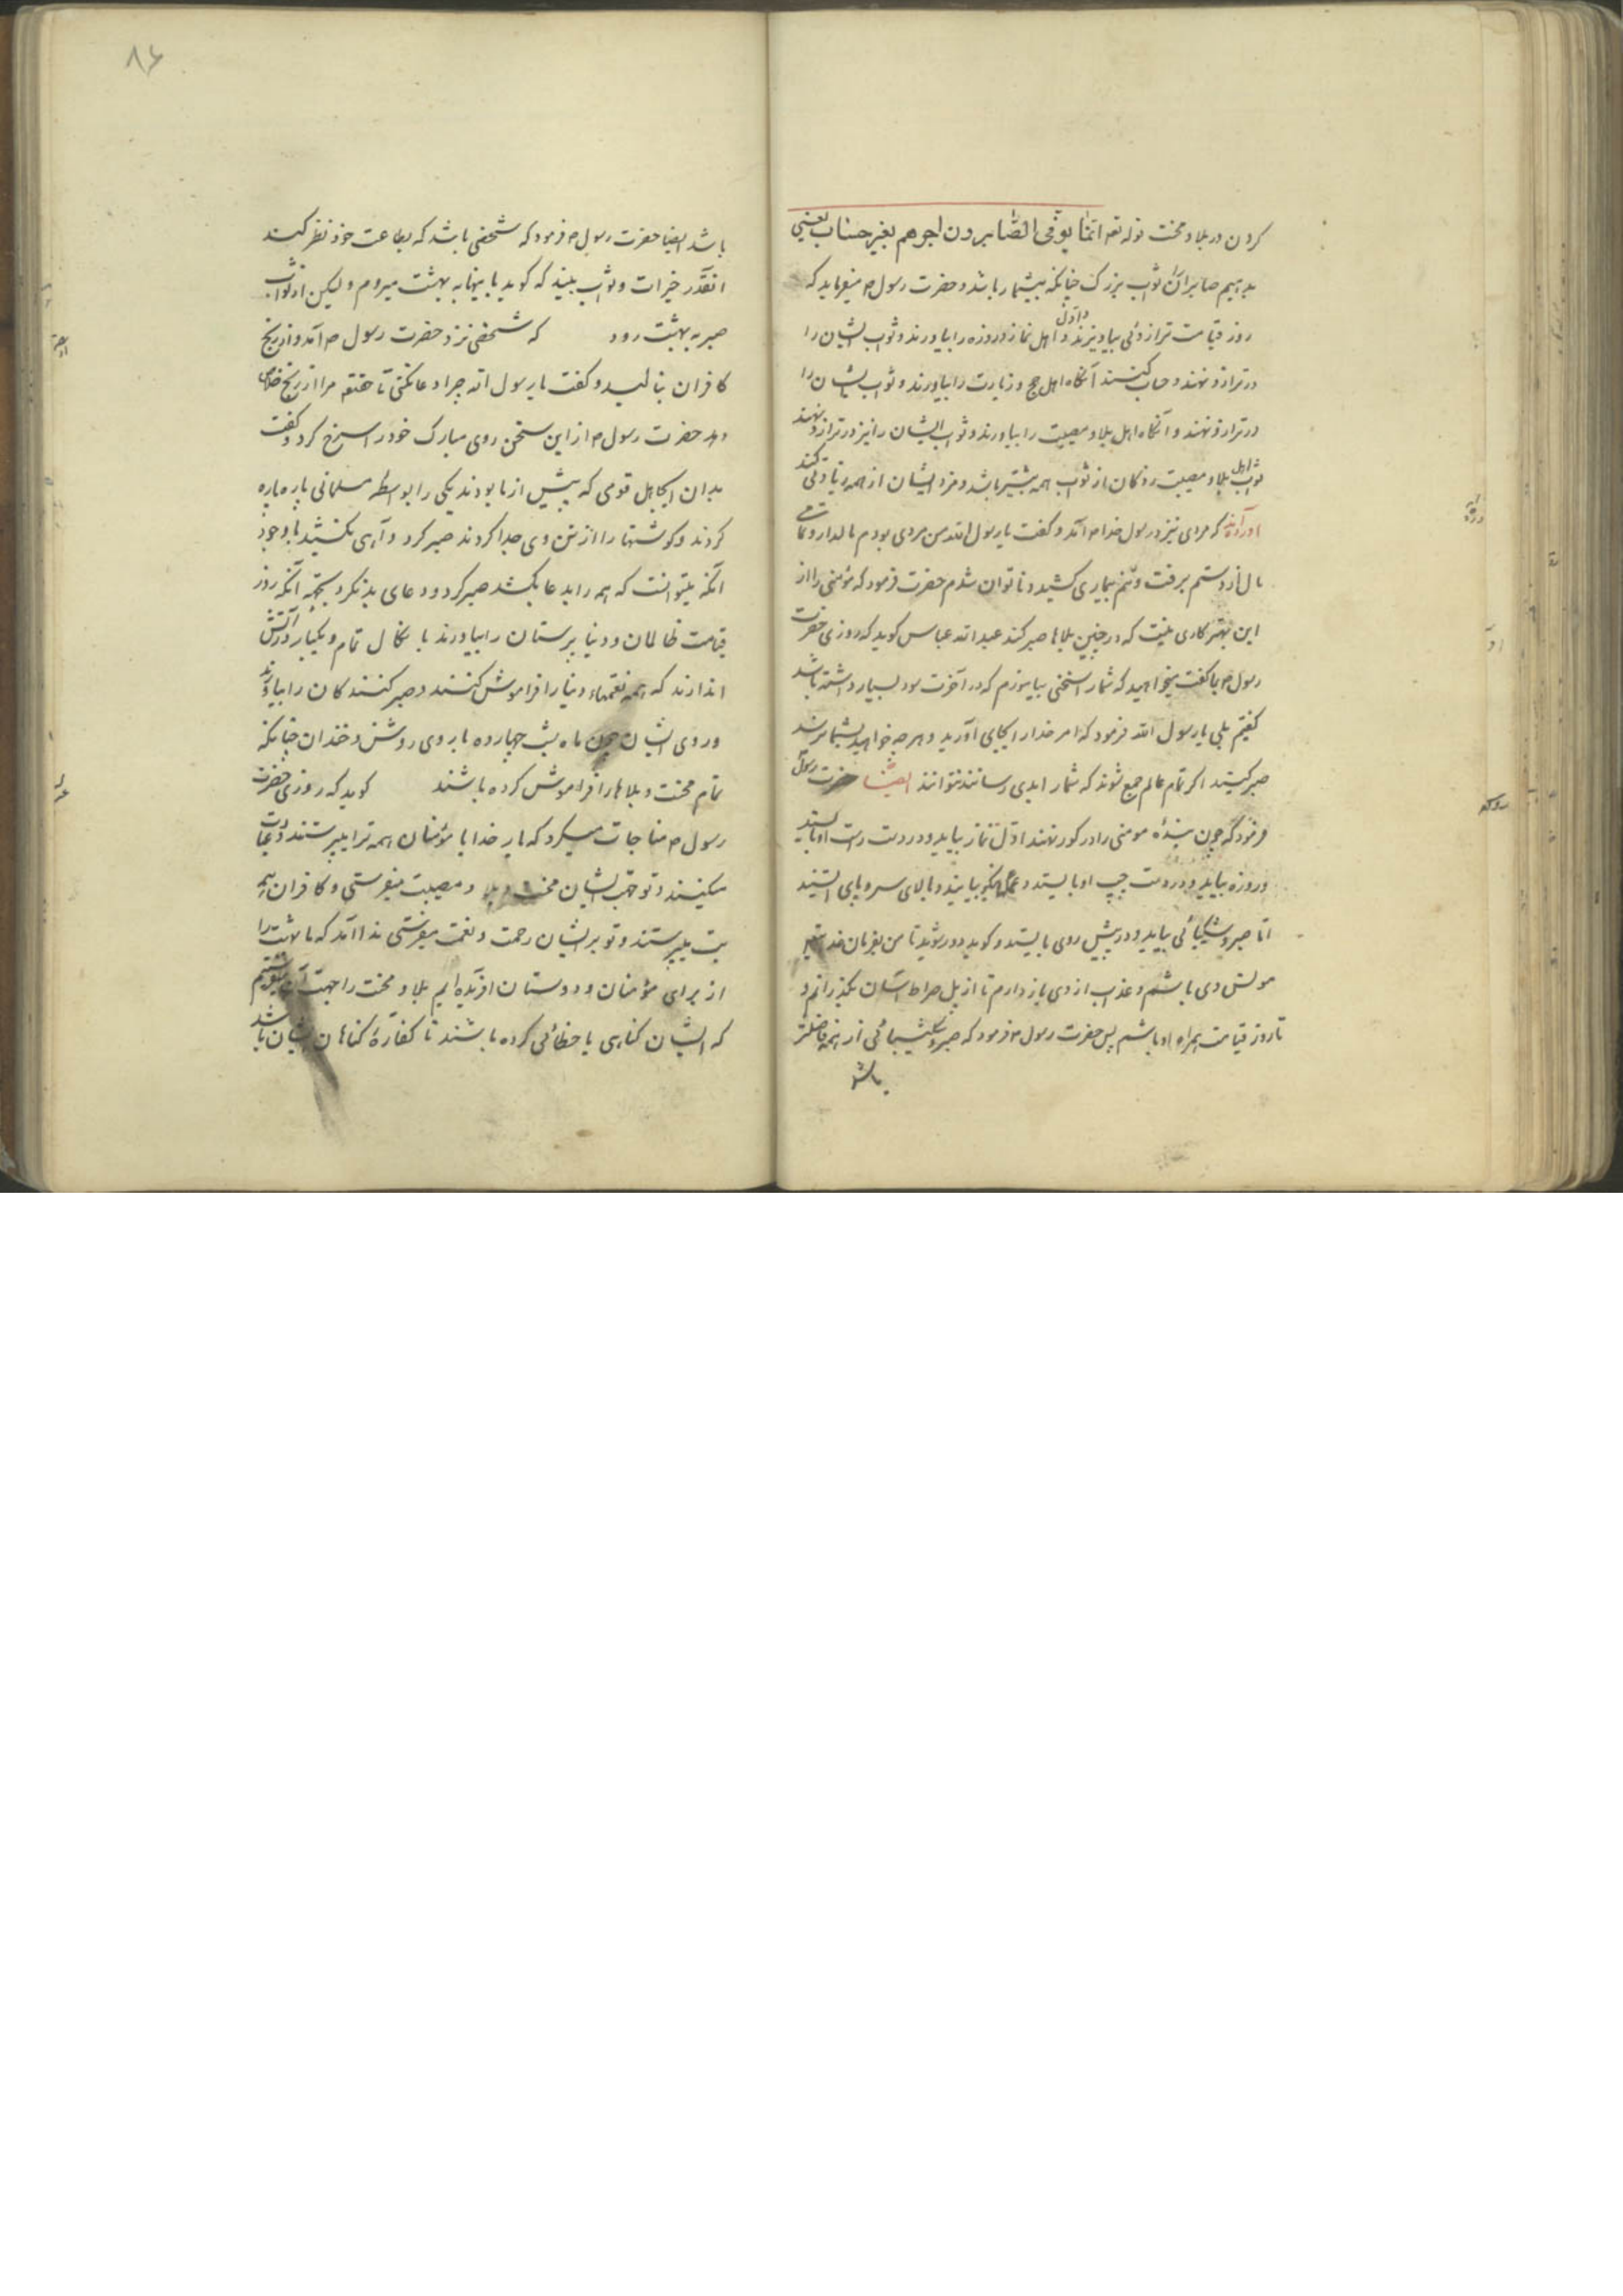 کردن در بلا و محنت قوله تعه انّما یوفّی الصّابرون اجرهم بغیر حساب یعنی
بدهیم صابران را ثواب بزرک چنانکه بیشمار باشد و حضرت رسول ص میفرماید که
روز قیامت ترازوئی بیاویزند و اوّل اهل نماز و روزه را بیاورند و ثواب ایشان را
در ترازو نهند و حساب کنند آنکاه اهل حج و زیارت را بیاورند و ثواب ایشان را
در ترازو نهند و آنکاه اهل بلا و مصیبت را بیاورند و ثواب ایشان را نیز در ترازو نهند
ثواب اهل بلا و مصیبت زدکان از ثواب همه بیشتر باشد و مزد ایشان از همه زیادتی کند
آورده‌اند که مردی نیز در رسول خدا ص آمد و کفت یا رسول الله من مردی بودم مالدار و تمامی
مال از دستم برفت و تنم بیماری کشید و ناتوان شدم حضرت فرمود که مؤمنی را از
این بهتر کاری نیست که در چنین بلاها صبر کند عبدالله عباس کوید که روزی حضرت
رسول ص با کفت میخواهید که شما را سخنی بیاموزم که در آخرت سود بسیار داشته باشد
کفتیم بلی یا رسول الله فرمود که امر خدا را بجای آورید و هر چه خواهید بشما برسد
صبر کنید اکر تمام عالم جمع شوند که شما را بدی رسانند نتوانند ایضا حضرت رسول
فرمود که چون بندهٔ مومنی را در کور نهند اوّل نماز بیاید و در دست راست او بایستد
و روزه بیاید و در دست چپ او بایستد و عملهای نیکو بیایند و بالای سر و پای ایستند
امّا صبر و شکیبائی بیاید و در پیش روی بایستد و کوید دور شوید تا من بفرمان خدا
مونس وی باشم و عذاب از وی باز دارم تا از پل صراط آسان بکذرانم و
تا روز قیامت همراه او باشم پس حضرت رسول ص فرمود که صبر و شکیبائی از همه فاضلتر
باشد
۸۶
باشد ایضا حضرت رسول ص فرمود که شخصی باشد که بطاعت خود نظر کند
آنقدر خیرات و ثواب بیند که کوید با اینها به بهشت میروم ولیکن از ثواب
صبر به بهشت رود که شخصی نزد حضرت رسول ص آمد و از رنج
کافران بنالید و کفت یا رسول الله چرا دعا نکنی تا حقتعه مرا از رنج خلاص
دهد حضرت رسول ص از این سخن روی مبارک خود را سرخ کرد و کفت
بدان ایجاهل قومی که پیش از ما بودند یکی را بواسطه مسلمانی پاره پاره
کردند و کوشتها را از تن وی جدا کردند صبر کرد و آهی نکشید با وجود
آنکه میتوانست که همه را بدعا بکشد صبر کرد و دعای بد نکرد بجهة آنکه روز
قیامت ظالمان و دنیا پرستان را بیاورند با نکال تمام و یکبار در آتش
اندازند که همه نعمتهاء دنیا را فراموش کنند و صبر کنندکان را بیاورند
و روی ایشان چون ماه شب چهارده با روی روشن و خندان چنانکه
تمام محنت و بلاها را فراموش کرده باشند کوید که روزی حضرت
رسول ص مناجات میکرد که بار خدایا مؤمنان همه ترا میپرستند و طاعت
میکنند و تو بجهت ایشان محنت و بلا و مصیبت میفرستی و کافران همه
بت میپرستند و تو بر ایشان رحمت و نعمت میفرستی ندا آمد که ما بهشت را
از برای مؤمنان و دوستان آفریده‌ایم بلا و محنت را جهت آن میفرستیم
که ایشان کناهی یا خطائی کرده باشند تا کفارهٔ کناهان ایشان باشد